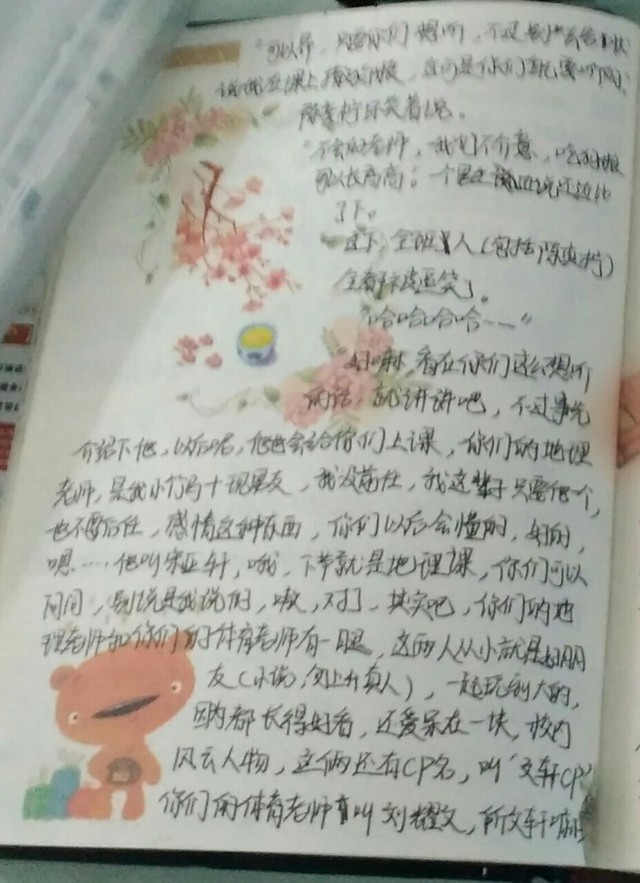 “可以是可以,只要你们想听,不过别
说我在课上撒狗粮,这可是你们要听的”
陈袁柠坏笑着说。
“不会的老师,我们不介意,吃狗粮
可以长高高。”一个男生
了下。
这下,全班人(包括陈袁柠)
全都被逗笑了。
“哈哈哈哈……”
“好嘛,看在你们这么想听
的话,就讲讲吧,不过事先
介绍下他,以后呢,他也会给你们上课,你们的地理
老师,是我小竹马十现男友,我没前任,我这辈子只要他一个,
也不要后任,感情这种东西,你们以后会懂的,好的,
嗯……他叫宋亚轩,哦,下节就是地理课,你们可以
问问,别说是我说的,嗷,对了,其实吧,你们的地
理老师和你们的体育老师有一腿,这两人从小就是好朋
友(小说,勿上升真人),一起玩到大的,
因为都长得好看,还爱呆在一块,校内
风云人物,这俩还有CP名,叫‘文轩CP’
你们的体育老师叫刘耀文,所文轩嘛